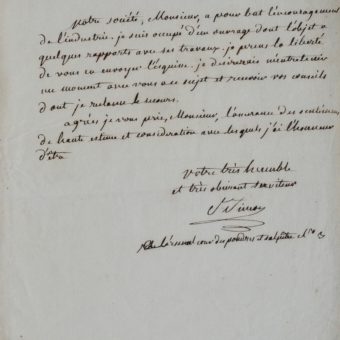 votre société, Monsieur, a pour but l'encouragement
de l'industrie. je suis occupé d'un ouvrage dont l'objet a
quelques rapports avec ses travaux. je prens la liberté
de vous en envoyer l'esquisse. je désirerais m'entretenir
un moment avec vous a ce sujet et recevoir vos conseils
dont je reclame le secours.
agréés je vous prie, Monsieur, l'assurance des sentimens
de haute estime et consideration avec lesquels j'ai l'honneur
d'être
votre très humble
et très obéissant serviteur
St Simon
rue de l'arsenal cour des poudres et salpêtre